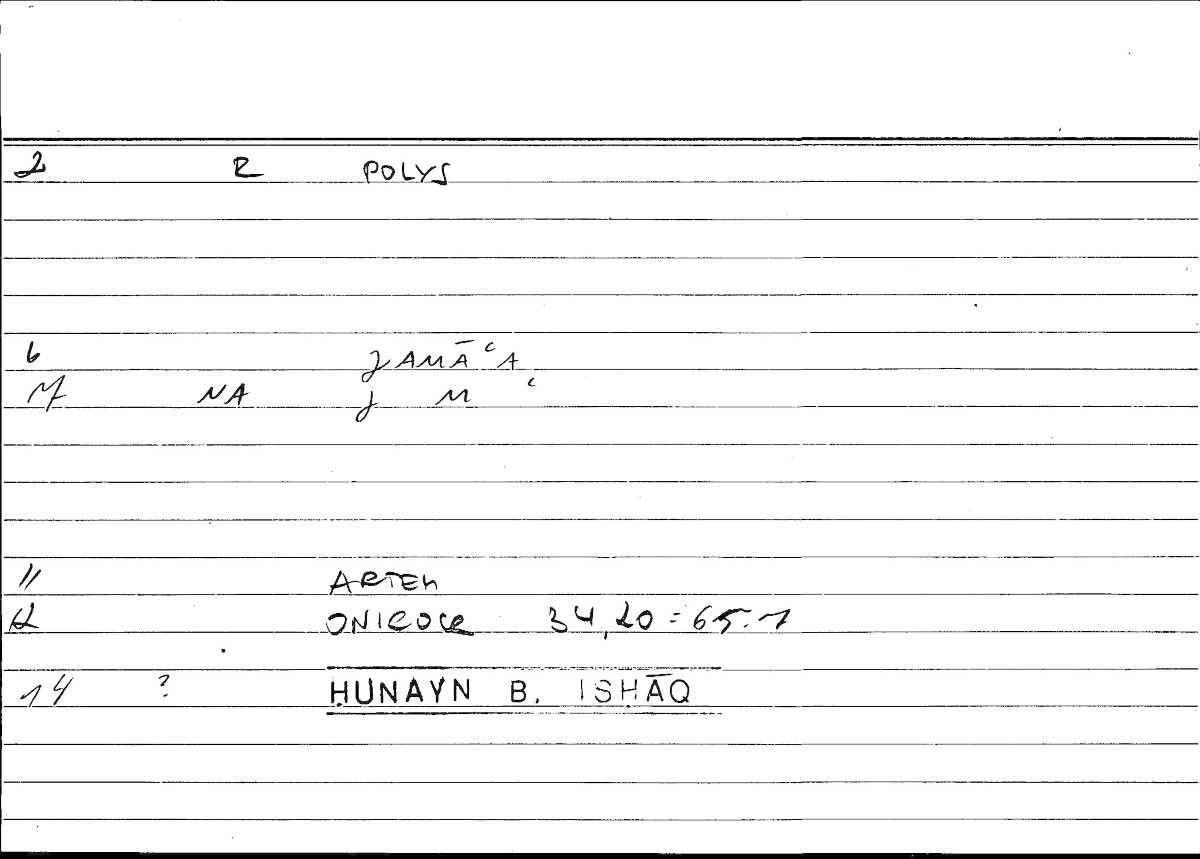 2 R POLYS
6 JAMĀʿA
NA J M ʿ
11 ARTEM
12 ONIROCR 34,20 = 65.1
14 ? ḤUNAYN B. ISḤĀQ